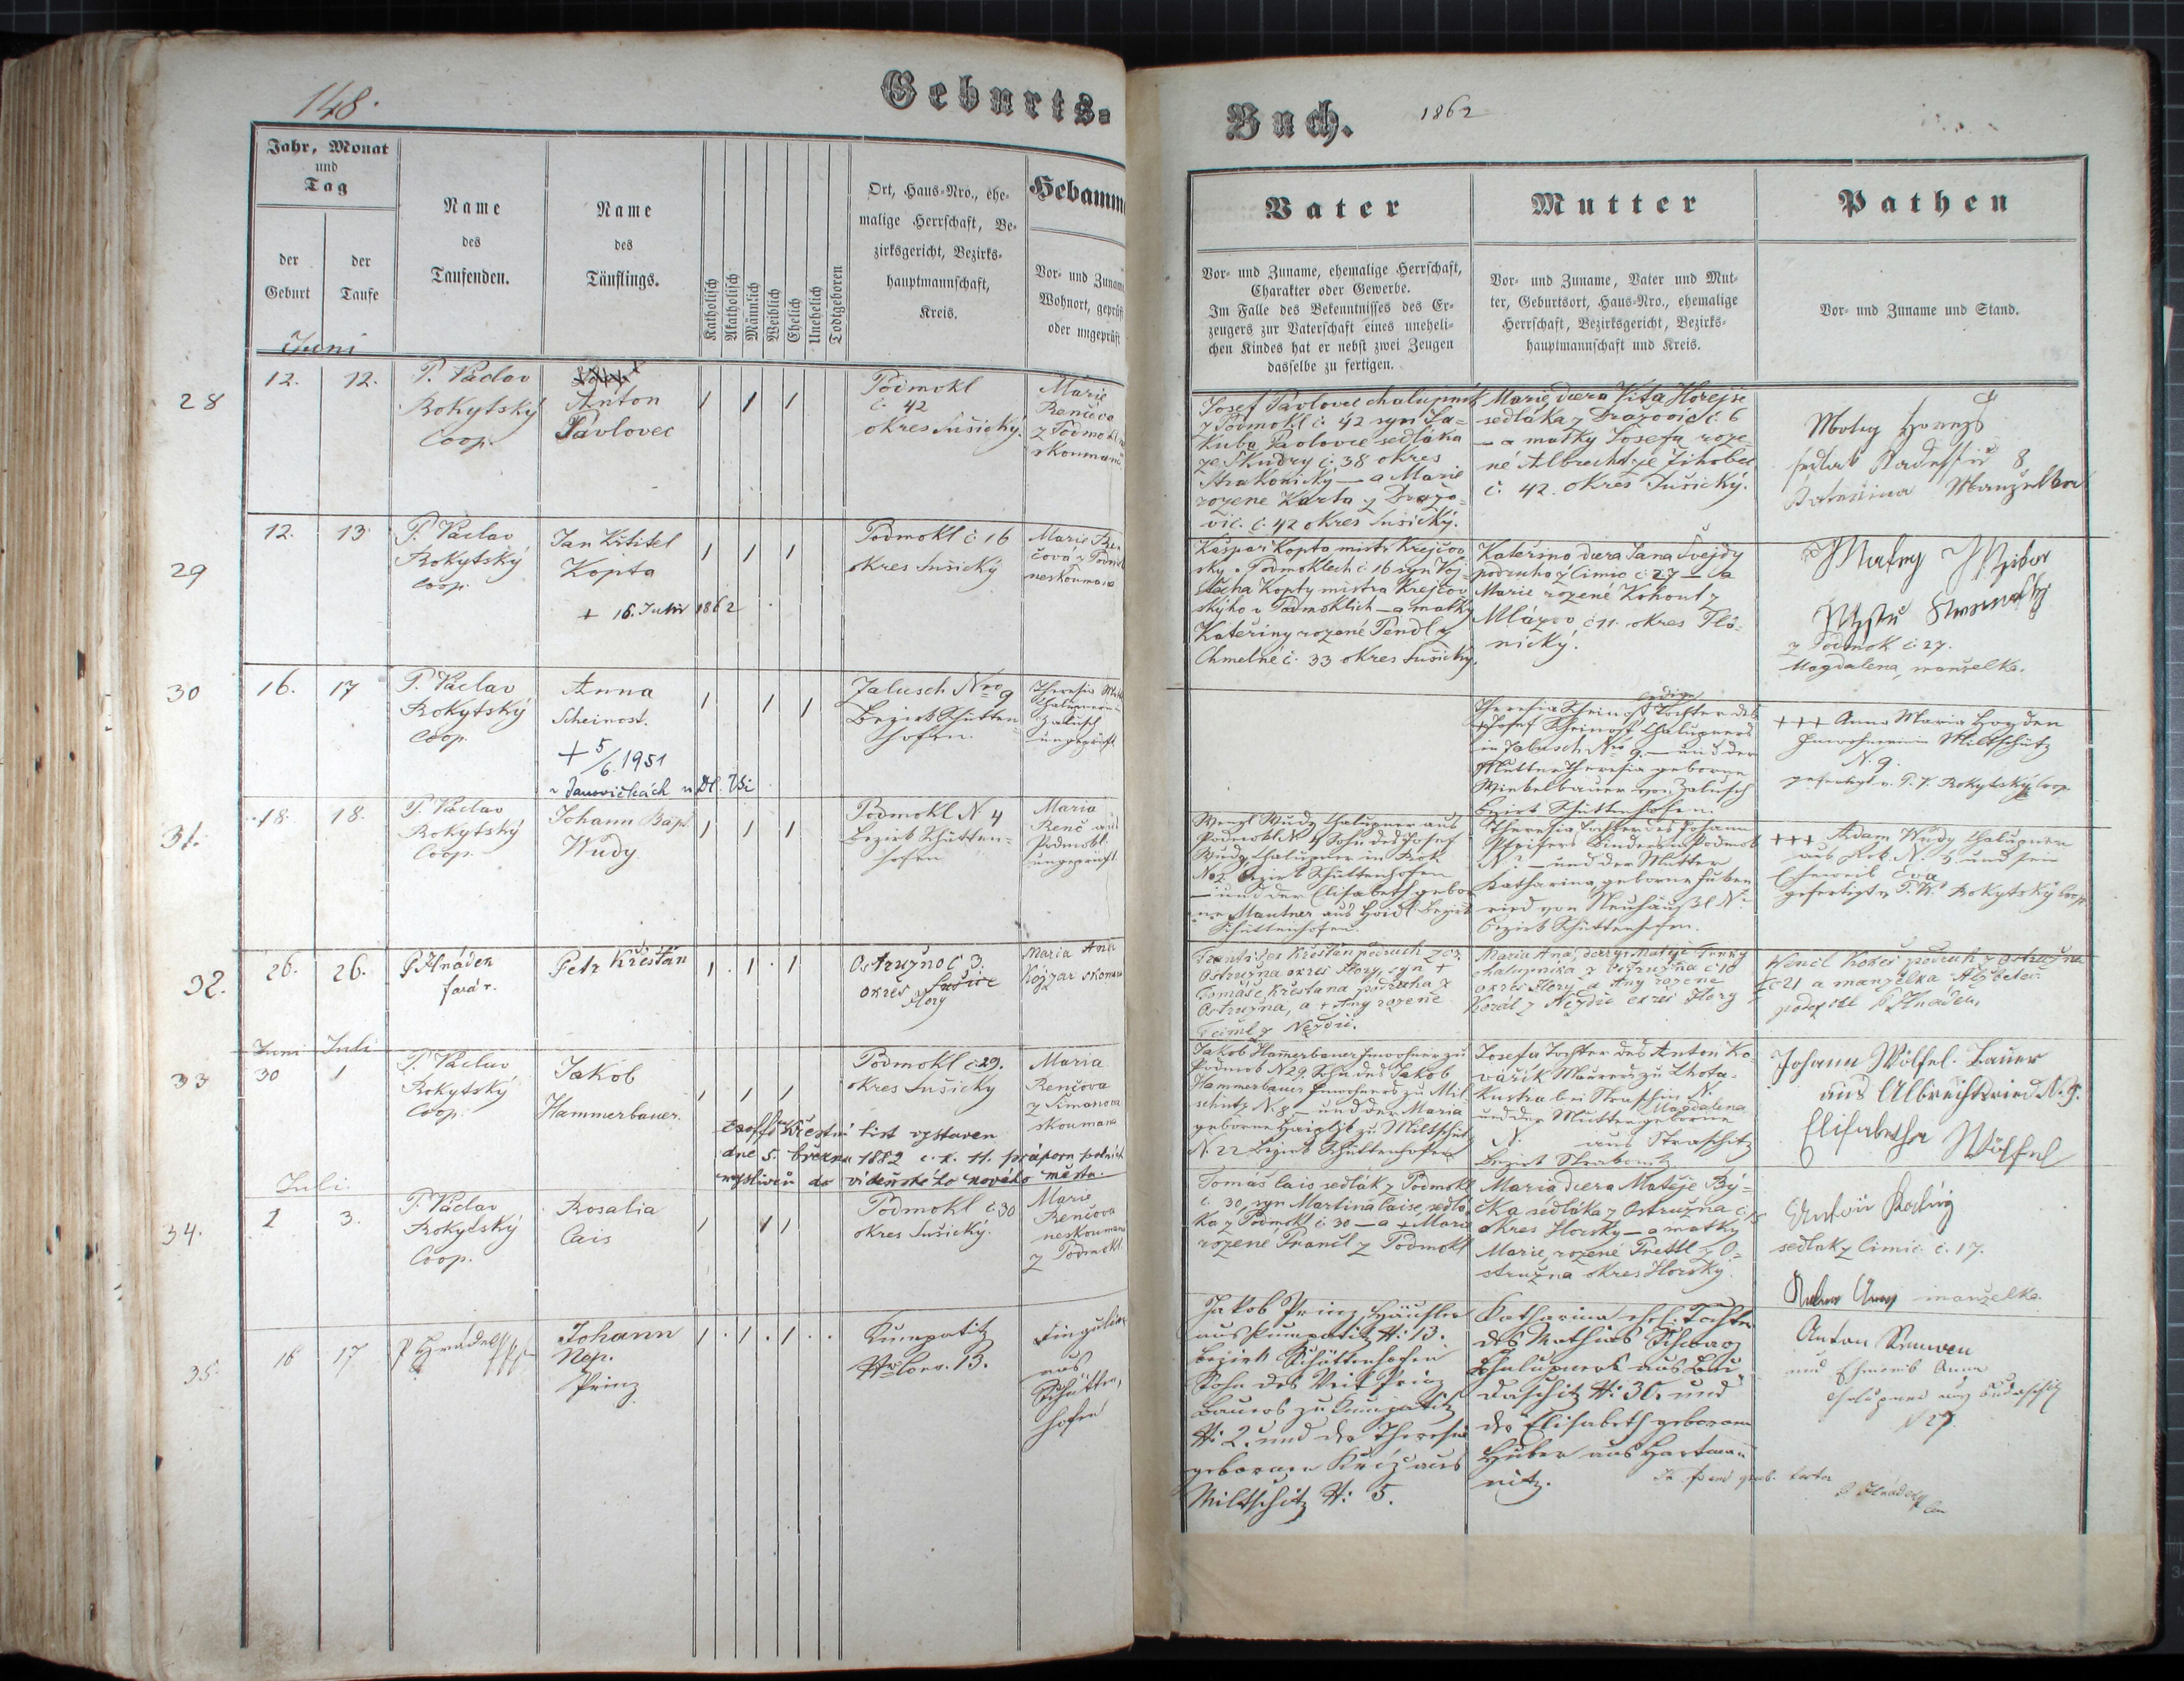 148.
Geburts=
Buch.
1862
Jahr, Monat
und
Tag
der
Geburt
der
Taufe
Name
des
Taufenden.
Name
des
Täuflings.
Katholisch
Akatholisch
Männlich
Weiblich
Ehelich
Unehelich
Todtgeboren
Ort, Haus=Nro., ehe=
malige Herrschaft, Be=
zirksgericht, Bezirks=
hauptmannschaft,
Kreis.
Hebamme
Vor= und Zuname
Wohnort, geprüft
oder ungeprüft
Vater
Vor= und Zuname, ehemalige Herrschaft,
Charakter oder Gewerbe.
Im Falle des Bekenntnisses des Er=
zeugers zur Vaterschaft eines uneheli=
chen Kindes hat er nebst zwei Zeugen
dasselbe zu fertigen.
Mutter
Vor= und Zuname, Vater und Mut=
ter, Geburtsort, Haus=Nro., ehemalige
Herrschaft, Bezirksgericht, Bezirks=
hauptmannschaft und Kreis.
Pathen
Vor= und Zuname und Stand.
Juni
28
12. 12.
P. Václav
Rokytský
Coop.
Anton
Pavlovec
Podmokl
č. 42
okres Sušický.
Marie
Renčova
z Podmokl
skoumaná
Josef Pavlovec chalupník
z Podmokl č. 42 syn Ja=
kuba Pavlovce sedláka
ze Škudry č. 38 okres
Strakonický — a Marie
rozené Karta z Dražo=
vic. č. 42 okres Sušický.
Marie, dcera Víta Horejše
sedláka z Dražovic č. 6
— a matky Josefa roze=
né Albrecht ze Jihobec
č. 42. okres Sušický.
8
Katerina Manzelka
29
12. 13
P. Václav
Rokytský
Coop.
Jan Křtitel
Kopta
+ 16. Juni 1862
Podmokl č 16
okres Sušický
Marie Ren=
čová z Podmokl
neskoumana
Kašpar Kopta mistr Krejčov
sky v Podmoklech č 16 syn Voj=
těcha Kopty mistra Krejčov
ského v Podmoklich — a matky
Kateřiny rozené Pendl z
Chmelné č. 33 okres Sušický.
Kateřina dcera Jana Švejdy
podruha z Čimic č 27 — a
Marie rozené Kohout z
Mlázov č 11. okres Pla=
nický.
z Podmok č 27.
Magdalena, manželka.
30
16. 17
P. Václav
Rokytský
Coop.
Anna
Scheinost.
+ 5/6. 1951
v Janovičkách u Dl. Vsi
Jalusch Nro 9
Bezirk Schütten
hofen.
Theresia
Zalusch
ungeprüft
ledige
Theresia Scheinost Tochter des
+ Josef Scheinost Chalupners
in Jalusch Nro 9. — und der
Mutter Theresia geborne
Wiebelbauer von Zalusch
Bezirk Schüttenhofen.
+++ Anna Maria Hayden
Inwohnerin in Miltschütz
N. 9.
gefertigt v. P. V. Rokytský Coop.
31.
18. 18.
P. Václav
Rokytský
Coop.
Johann Bapt.
Wudy
Podmokl N 4
Bezirk Schütten=
hofen
Maria
Renč aus
Podmokl.
ungeprüft.
Wenzl Wudy Chalupner aus
Podmokl N 4 Sohn des Josef
Wudy Chalupner in Rok
No 2 Bezirk Schüttenhofen
— und der Elisabeth gebor=
ne Mautner aus Hoidl Bezirk
Schüttenhofen.
Theresia Tochter des Johann
Pfeifers Binders in Podmok
N ? — und der Mutter
Katharina geborne
von Neuhäusl N
Bezirk Schüttenhofen.
+++ Adam Wudy Chalupner
aus Rok N. 2. und sein
Eheweib Eva
gefertigt v. P. V. Rokytský Coop.
32.
26. 26.
P Hnáden
farář.
Petr Křesťan
Ostružno č 3.
okres Sušice
Hory
Maria Anna
Kojzar skoumaná
František Křesťan podruh z
Ostružna okres Hory, syn +
Tomáše Křesťana podruha z
Ostružna, a + Any rozené
Faiml z Nezdic.
Maria Ana, dcera Matěje
chalupníka z Ostružna č 10
okres Hory a Any rozené
Korál z Nezdic okres Hory
Wencl Koželuh podruh z Ostružna
č 21 a manželka Alžběta
podepsal P. Hnáden
Juni Juli
33
30 1
P. Václav
Rokytský
Coop.
Jakob
Hammerbauer.
Podmokl č. 29.
okres Sušický
Maria
Renčova
z Šimanova
skoumana
Křestní list vystaven
dne 5. března 1882 c. k. 11. praporu polních
myslivců do vídeňského nového města.
Jakob Hammerbauer Inwohner zu
Podmok N 29. Sohn des Jakob
Hammerbauer Inwohners zu Mil=
schütz N. 8 — und der Maria
geborne Haischl zu Miltschütz
N. 22 Bezirk Schüttenhofen
Josefa Tochter des Anton Ko=
vařík Maurers zu Lhota
Kustra bei Straschin N.
und der Mutter Magdalena geborne
N. aus Straschitz
Bezirk Strakonitz
Johann Wölfel. Bauer
aus Albrechtsried N. 9.
Elisabetha Wölfel
Juli.
34.
2 3.
P. Václav
Rokytský
Coop.
Rosalia
Cais
Podmokl č. 30
okres Sušický.
Marie
Renčova
neskoumana
z Podmokl
Tomáš Cais sedlák z Podmokl
č. 30, syn Martina Caise, sedlá
ka z Podmokl č 30 — a + Marie
rozené Prančl z Podmokl
Maria dcera Matěje Bý=
čka sedláka z Ostružna č 15
okres Horský — a matky
Marie, rozené Prettl z O=
stružna okres Horský.
sedlak z Čimic č. 17.
manželka.
35.
16 17
P Hnáden
Johann
Nep.
Prinz
Kumpatitz
Nro Cons. 13.
aus
Schütten=
hofen
Jakob Prinz, Häusler
aus Kumpatitz N: 13.
Bezirk Schüttenhofen
Sohn des Veit Prinz
Bauers zu Kumpatitz
N: 2. und der Theresia
geborenen Kříž aus
Miltschitz N: 5.
Katharina ehel. Tochter
des Mathias Schwarz
Chalupners aus Bu=
daschitz N: 30. und
der Elisabeth geborenen
Huber aus Hartma=
nitz.
Anton
und Eheweib Anna
Chalupner aus Budaschitz
N 27.